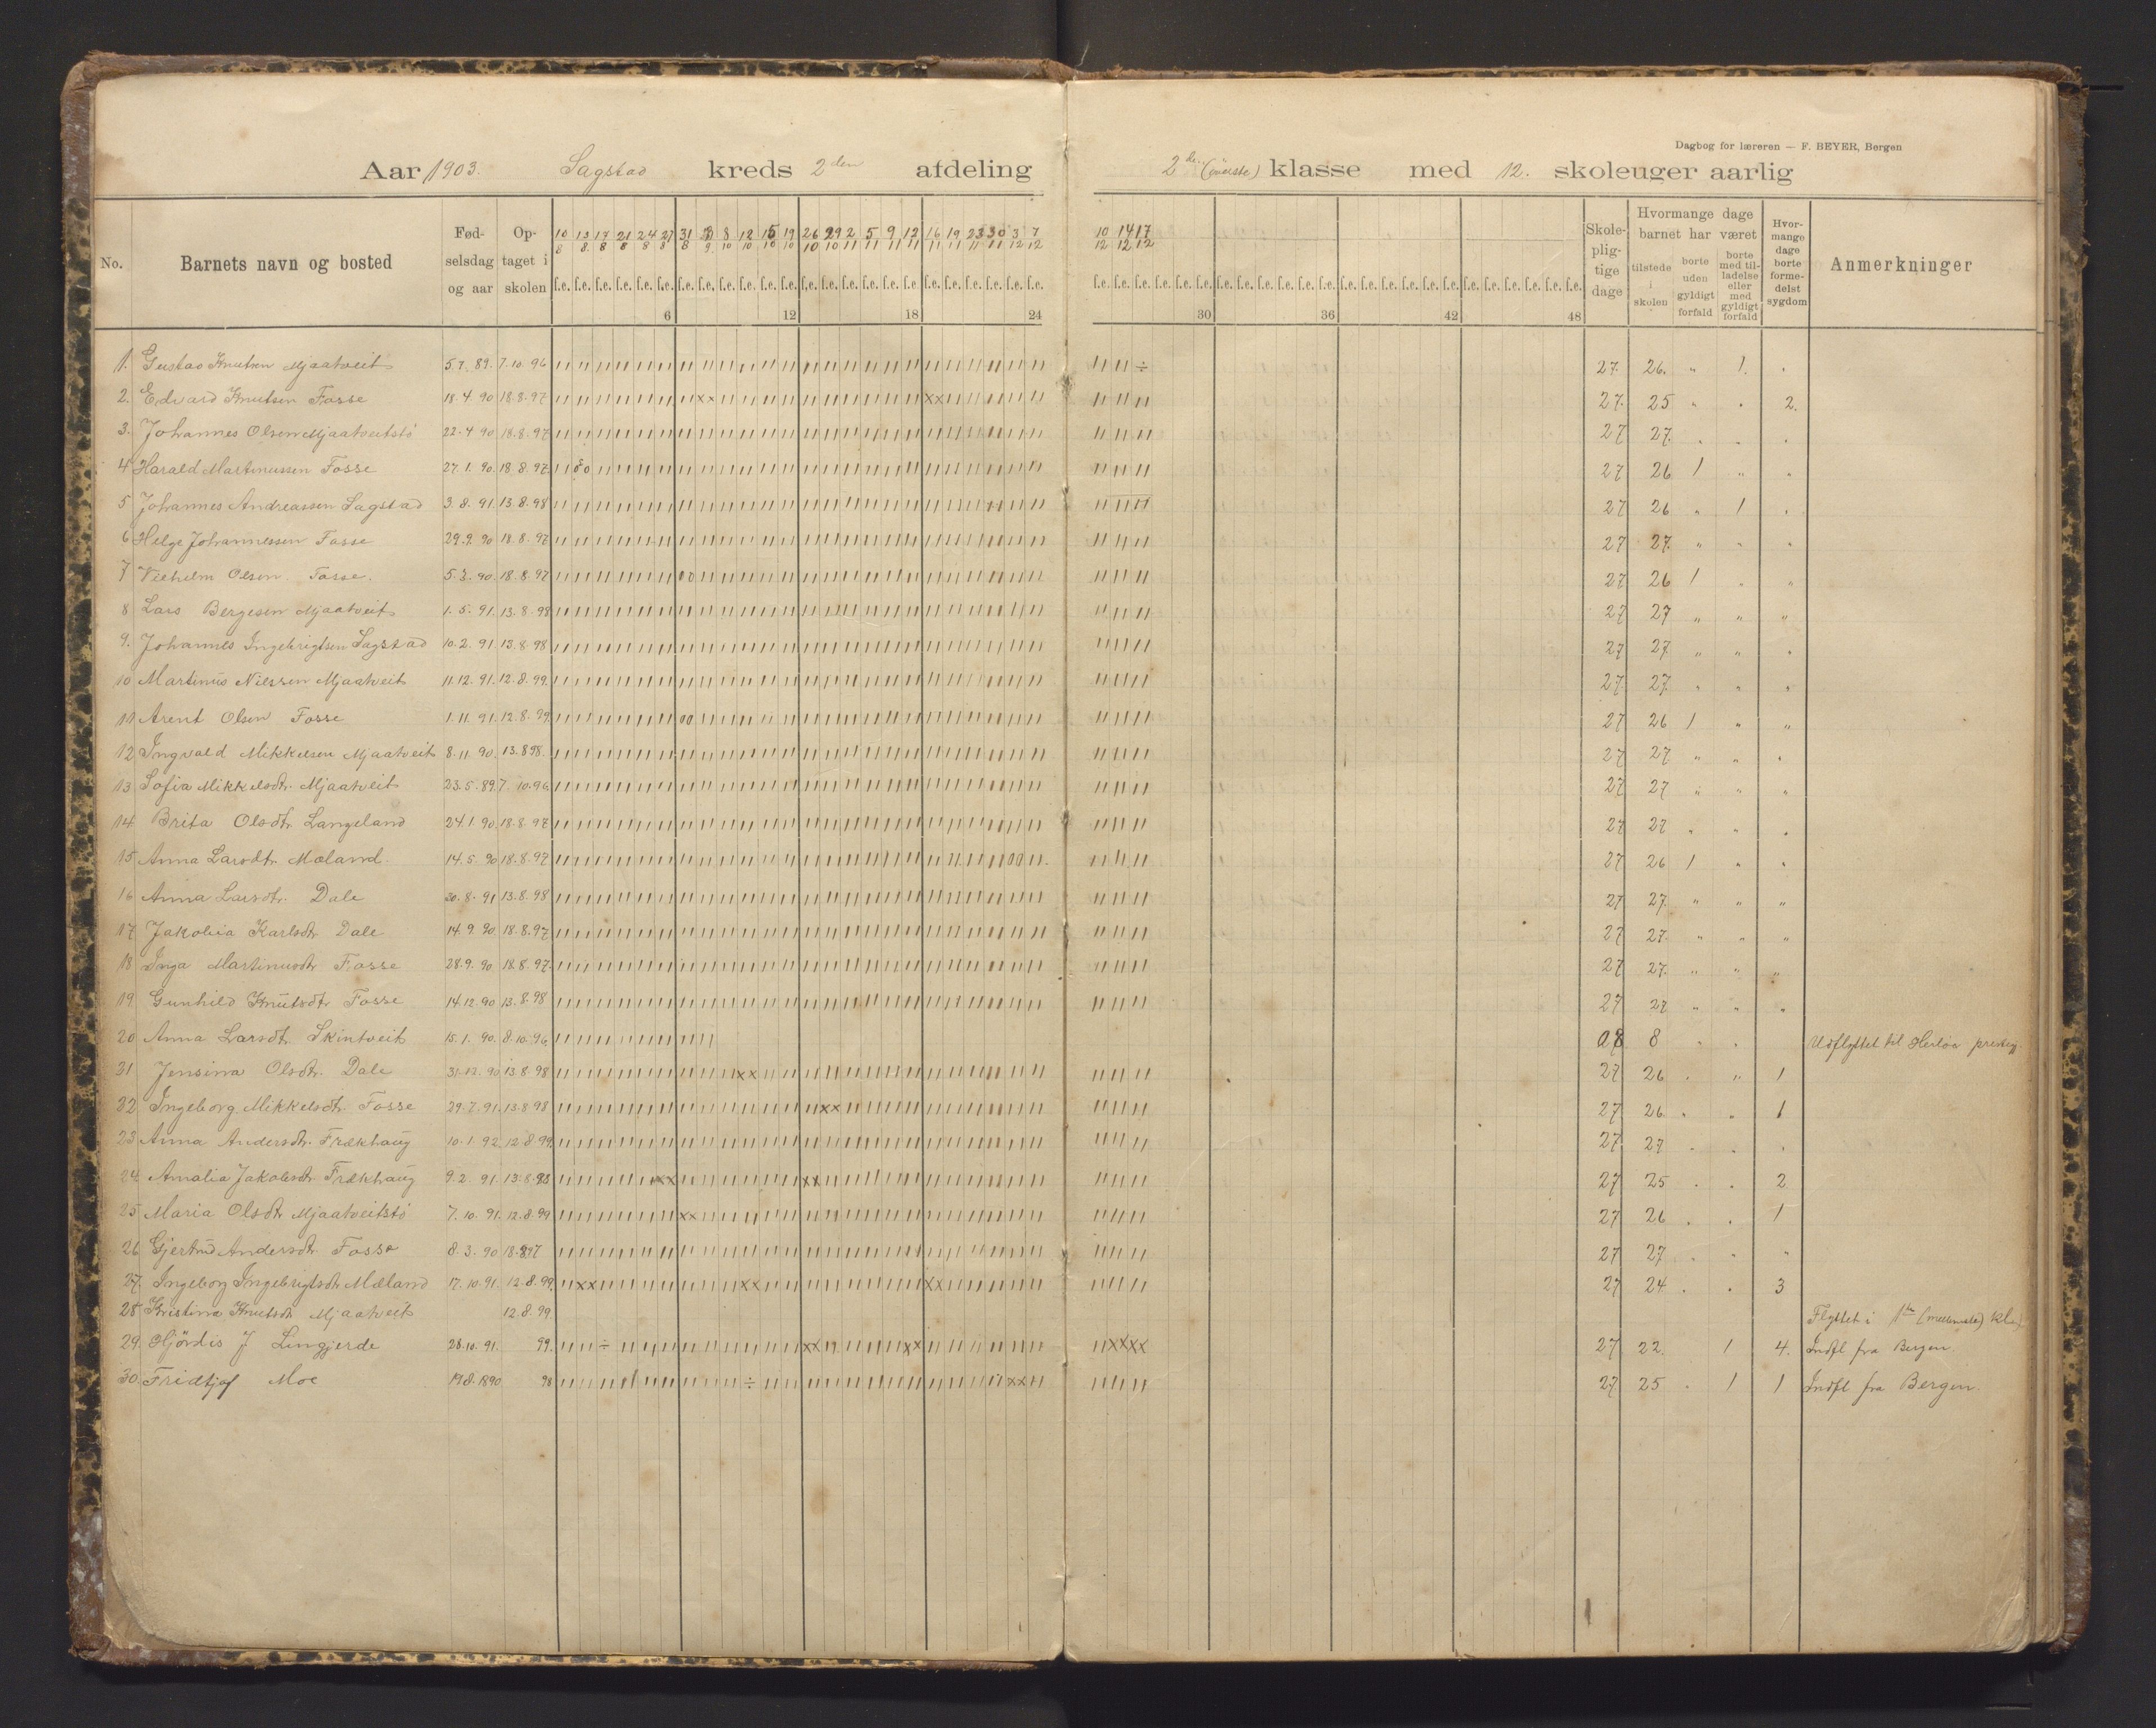 Dagbog for læreren — F. BEYER, Bergen
Aar 1903. Sagstad kreds 2den afdeling 2de. (øverste) klasse med 12. skoleuger aarlig
No. Barnets navn og bosted Fødselsdag og aar Optaget i skolen Skolepligtige dage Hvormange dage barnet har været tilstede i skolen borte uden gyldigt forfald borte med tilladelse eller med gyldigt forfald Hvormange dage borte formedelst sygdom Anmerkninger
10/8 13/8 17/8 21/8 24/8 27/8 31/8 3/9 8/10 12/10 15/10 19/10 26/10 29/10 2/11 5/11 9/11 12/11 16/11 19/11 23/11 30/11 3/12 7/12 10/12 14/12 17/12
f.e. f.e. f.e. f.e. f.e. f.e. f.e. f.e. f.e. f.e. f.e. f.e. f.e. f.e. f.e. f.e. f.e. f.e. f.e. f.e. f.e. f.e. f.e. f.e.
6 12 18 24 30 36 42 48
1. Gustav Knutsen Mjaatveit 5.7.89. 7.10.96 27. 26. " 1. "
2. Edvard Knutsen Fosse 18.4.90 18.8.97 27. 25 " " 2.
3. Johannes Olsen Mjaatveitstö 22.4.90 18.8.97 27 27. " " "
4 Harald Martinussen Fosse 27.1.90. 18.8.97 27 26 1 " "
5 Johannes Andreassen Sagstad 3.8.91. 13.8.98 27 26 " 1 "
6 Helge Johannessen Fosse 29.9.90 18.8.97 27 27. " " "
7 Vilhelm Olsen Fosse. 5.3.90. 18.8.97 27 26 1 " "
8 Lars Bergesen Mjaatveit 1.5.91. 13.8.98 27 27 " " "
9. Johannes Ingebrigtsen Sagstad 10.2.91. 13.8.98 27 27. " " "
10 Martinus Nilssen Mjaatveit 11.12.91. 12.8.99. 27. 27. " " "
11 Arent Olsen Fosse 1.11.91. 12.8.99. 27 26 1 " "
12 Ingvald Mikkelsen Mjaatveit 8.11.90. 13.8.98. 27 27 " " "
13 Sofia Mikkelsdtr. Mjaatveit 23.5.89. 7.10.96 27 27 " " "
14 Brita Olsdtr. Langeland 24.1.90 18.8.97 27 27 " " "
15 Anna Larsdtr. Mæland. 14.5.90 18.8.97 27 26 1 " "
16 Anna Larsdtr. Dale 30.8.91 13.8.98 27 27. " " "
17 Jakobia Karlsdtr Dale 14.9.90 18.8.97 27 27. " " "
18 Inga Martinusdtr Fosse 28.9.90 18.8.97. 27 27. " " "
19. Gunhild Knutsdtr Fosse 14.12.90 13.8.98 27 27 " " "
20 Anna Larsdtr. Skintveit 15.1.90. 8.10.96 8 8 " " Udflyttet til Herlöe prestegj.
31 Jensina Olsdtr. Dale 31.12.90 13.8.98 27 26 " " 1
22 Ingeborg Mikkelsdtr. Fosse 29.7.91. 13.8.98 27 26 " " 1
23 Anna Andersdtr. Frækhaug 10.1.92 12.8.99. 27 27 " " "
24 Amalia Jakobsdtr. Frækhaug 9.2.91. 13.8.98 27 25 " " 2
25 Maria Olsdtr Mjaatveitstö 7.10.91. 12.8.99 27 26 " " 1
26 Gjertrud Andersdtr Fosse 8.3.90 18.8.97 27 27 " " "
27. Ingeborg Ingebrigtsdtr Mæland 17.10.91. 12.8.99. 27 24 " " 3
28 Kristina Knutsdtr Mjaatveit 12.8.99. Flyttet i 1ste (mellemste) kl.
29. Hjördis J Lingjerde 28.10.91. 99. 27 22. 1 4. Indfl fra Bergen.
30. Fridtjof Moe 19.8.1890 98 27 25 " 1 1 Indfl fra Bergen.